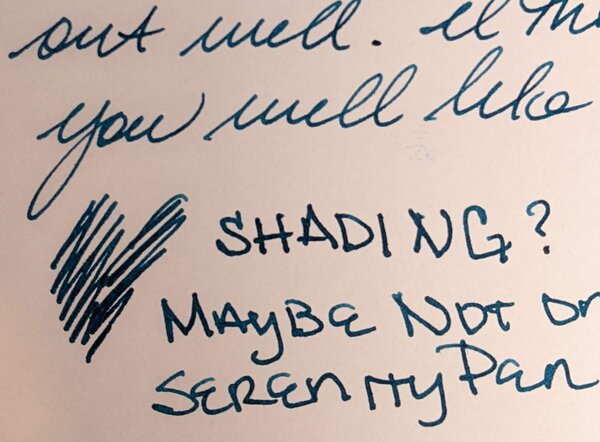 out well. I
you will like
SHADING?
MAyBE NOT
SERENITy